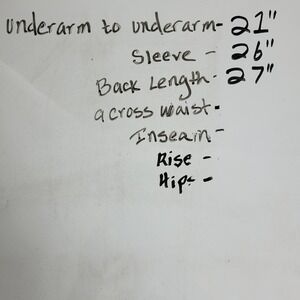 underarm to underarm- 21"
Sleeve - 26"
Back Length- 27"
across waist-
Inseam -
Rise -
Hips -